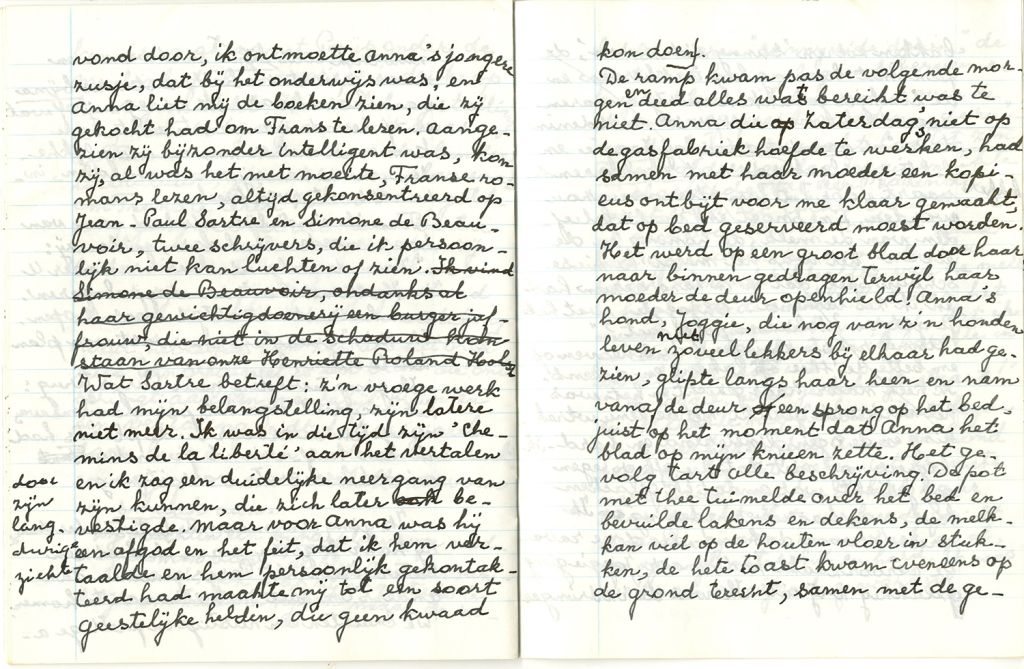 vond door, ik ontmoette Anna's jongere
zusje, dat bij het onderwijs was, en
Anna liet mij de boeken zien, die zij
gekocht had om Frans te leren. Aange-
zien zij bijzonder intelligent was, kon
zij, al was het met moeite, Franse ro-
mans lezen, altijd gekonsentreerd op
Jean-Paul Sartre en Simone de Beau-
voir, twee schrijvers, die ik persoon-
lijk niet kan luchten of zien. Ik vind
Simone de Beauvoir, ondanks al
haar gewichtigdoenerij een burger juf-
frouw, die niet in de schaduw kan
staan van onze Henriette Roland Holst
Wat Sartre betreft: z'n vroege werk
had mijn belangstelling, zijn latere
niet meer. Ik was in die tijd zijn 'Che-
mins de la liberté' aan het vertalen
en ik zag een duidelijke neergang van
zijn kunnen, die zich later ook be-
vestigde. Maar voor Anna was hij
een afgod en het feit, dat ik hem ver-
taalde en hem persoonlijk gekontak-
teerd had maakte mij tot een soort
geestelijke heldin, die geen kwaad
door
zijn
lang-
durige
ziekte
kon doen.
De ramp kwam pas de volgende mor-
gen en deed alles wat bereikt was te
niet. Anna die op Zaterdags niet op
de gasfabriek hoefde te werken, had
samen met haar moeder een kopi-
eus ontbijt voor me klaar gemaakt,
dat op bed geserveerd moest worden.
Het werd op een groot blad door haar
naar binnen gedragen terwijl haar
moeder de deur openhield. Anna's
hond, Joggie, die nog van z'n honden
leven niet zoveel lekkers bij elkaar had ge-
zien, glipte langs haar heen en nam
vanaf de deur een sprong op het bed,
juist op het moment dat Anna het
blad op mijn knieen zette. Het ge-
volg tart alle beschrijving. De pot
met thee tuimelde over het bed en
bevuilde lakens en dekens, de melk-
kan viel op de houten vloer in stuk-
ken, de hete toast kwam eveneens op
de grond terecht, samen met de ge-